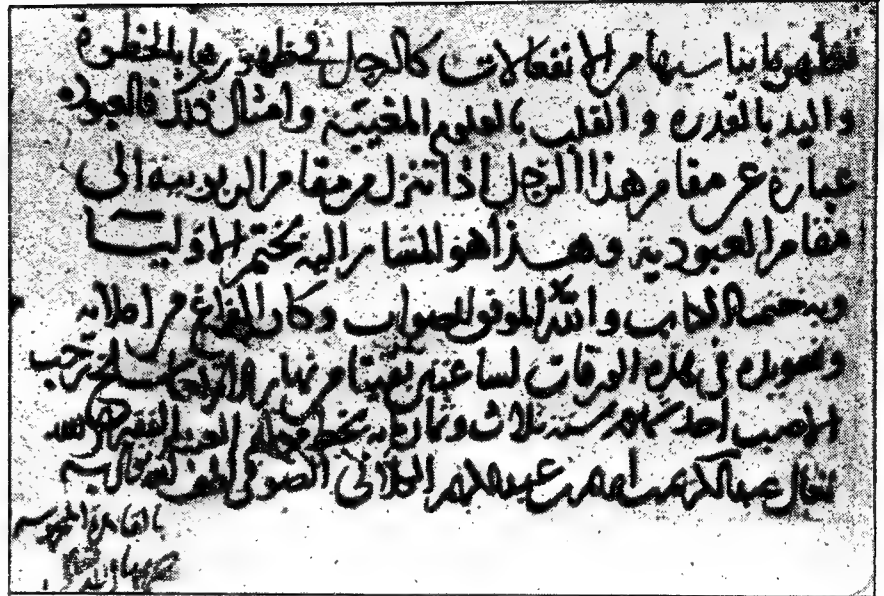 فتظهر بما يناسبها من الانفعالات كالرجل فى ظهورها بالخطوة
واليد بالقدره والقلب بالعلوم المغيبية وامثال ذلك فالعبودية
عبارة عن مقام هذا الرجل اذا تنزل من مقام الربوبيه الى
مقام العبودية وهذا هو المشار اليه بختم الاوليا
وبه ختمنا الكتاب والله الموفق للصواب وكان الفراغ من املائه
وتسويده فى هذه الورقات لساعتين بقيتا من نهار الاربعا سلخ رجب
الاصب احد شهور سنة ثلاث وثمانمايه بخط مؤلفه العبد الفقير الى الله
تعالى عبد الكريم بن ابراهيم بن عبد الكريم الكيلانى الصوفى لطف الله به
بالقاهرة المحروسه